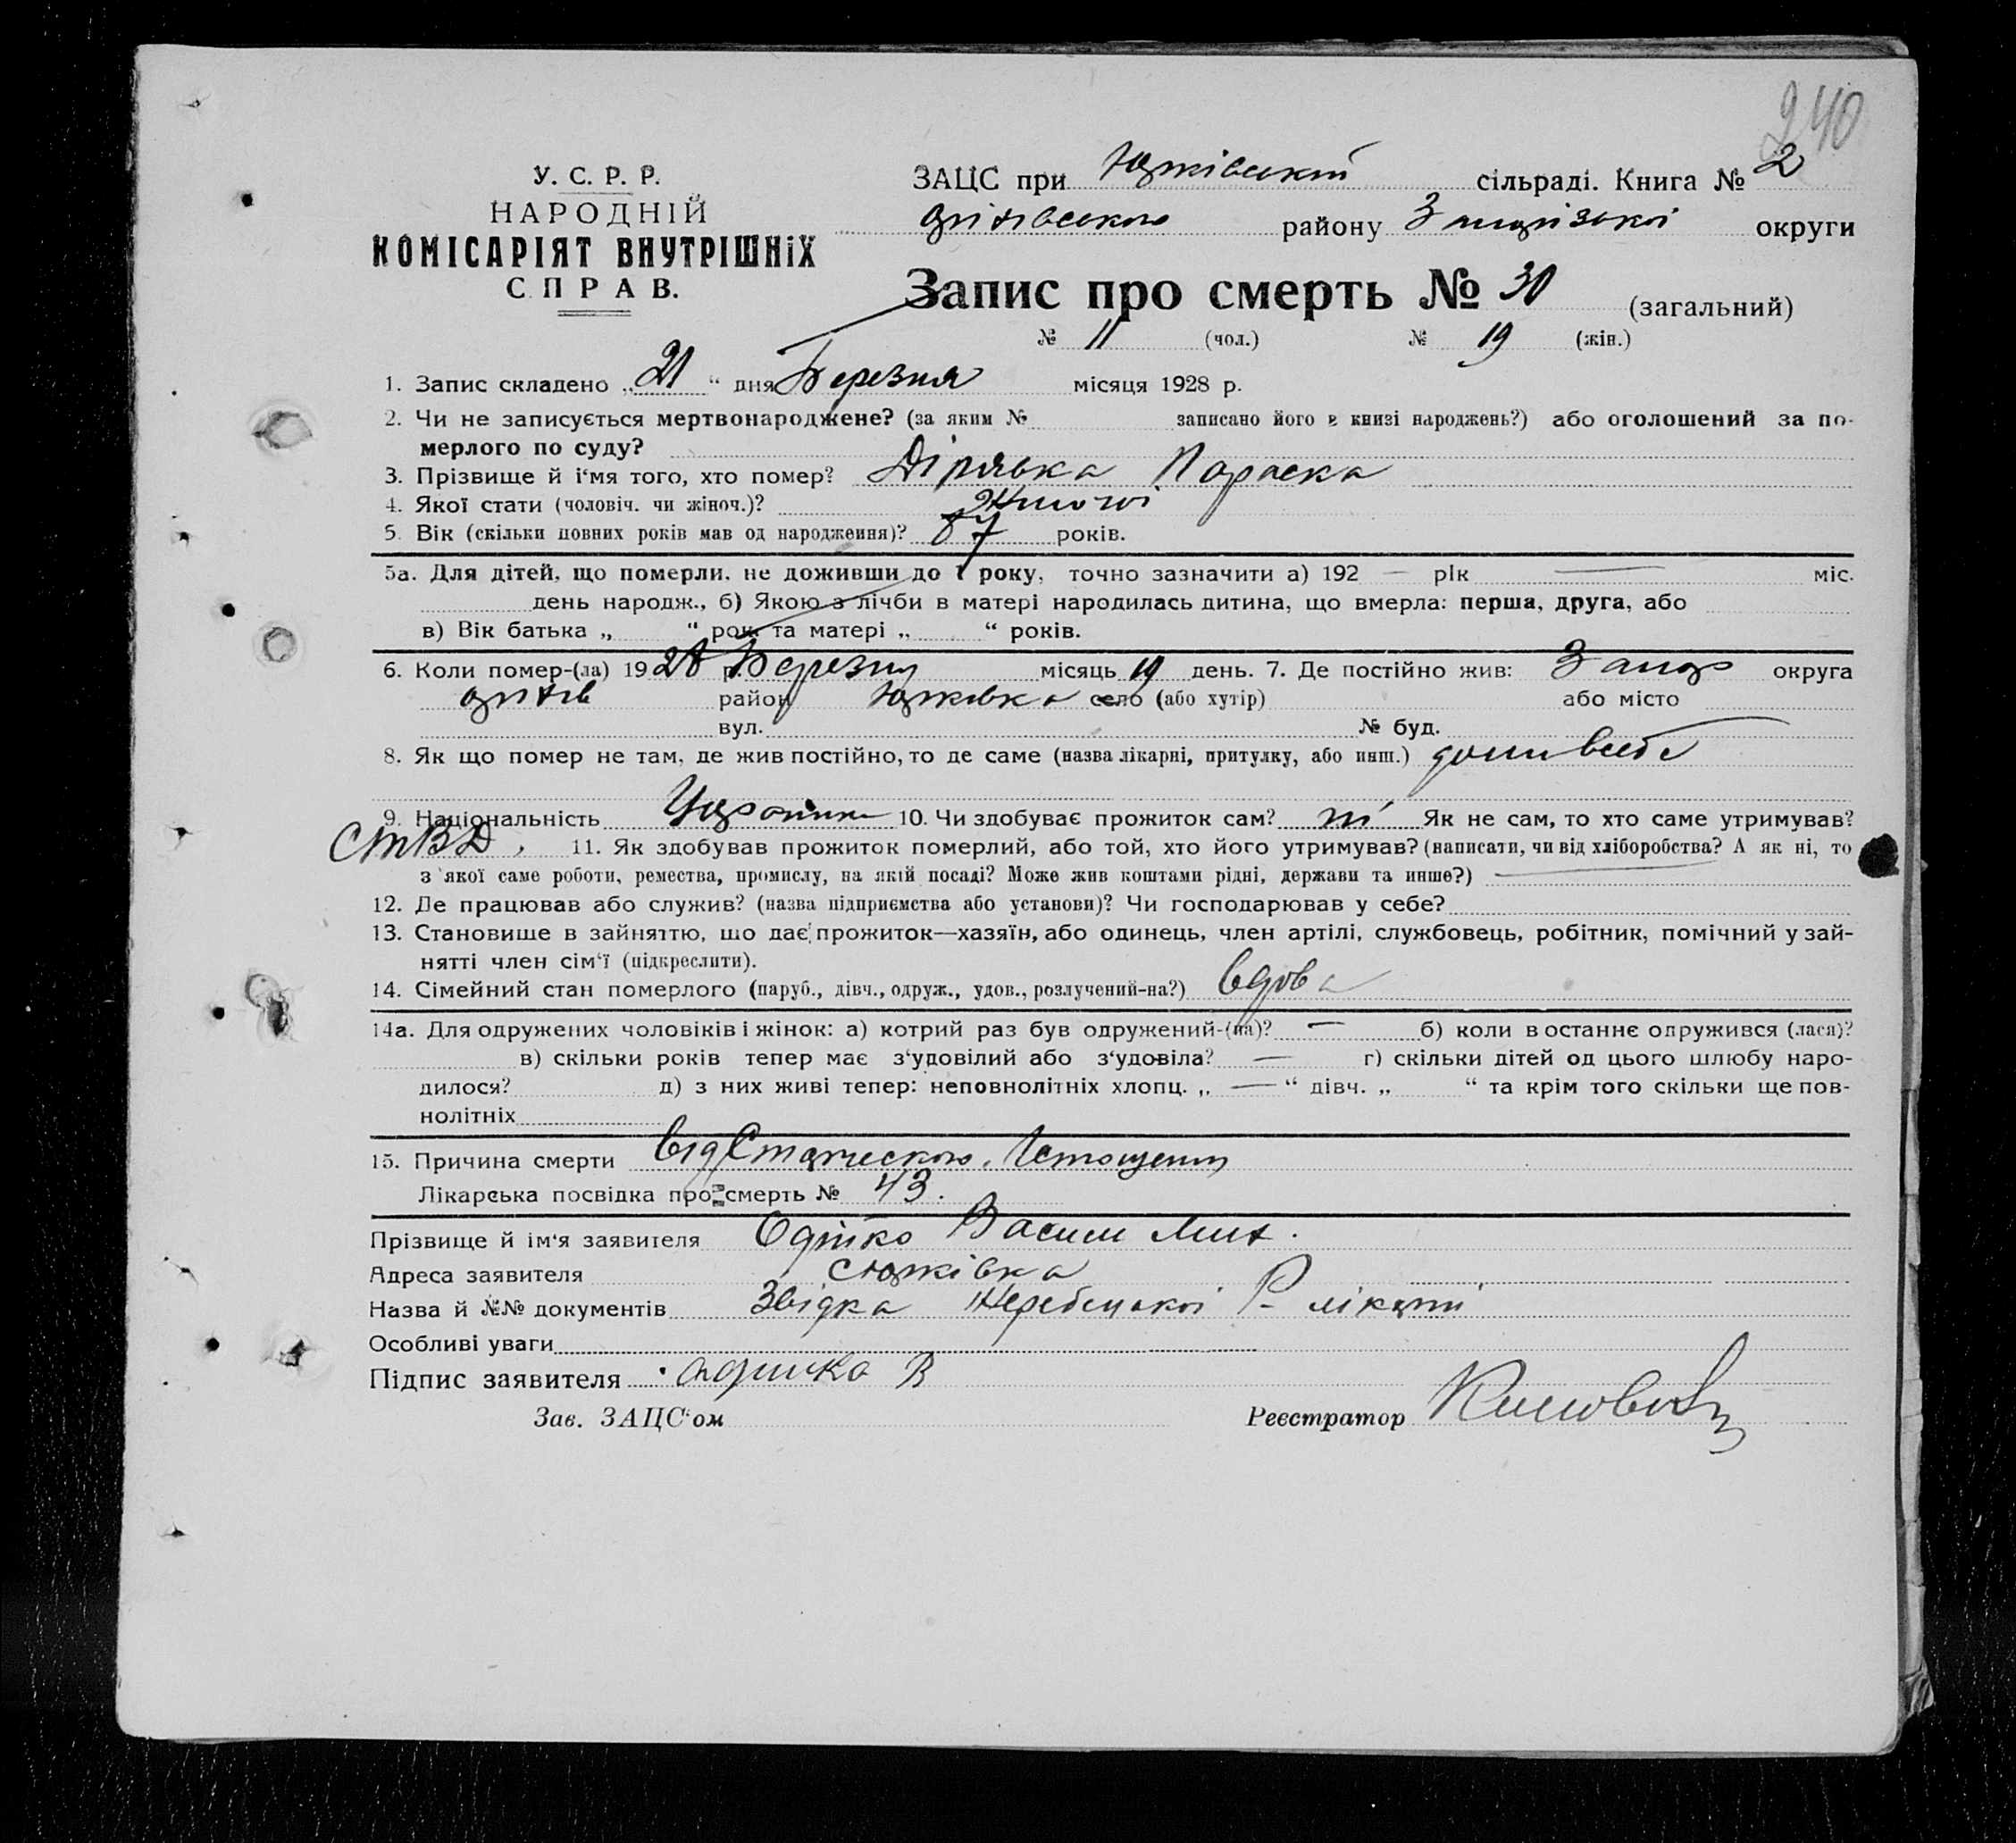 240
У. С. Р. Р.
НАРОДНІЙ
КОМІСАРІЯТ ВНУТРІШНіХ
СПРАВ.
ЗАЦС при Юрківській сільраді. Книга № 2
оріхівського району Запорізької округи
Запис про смерть № 30 (загальний)
№ 11 (чол.) № 19 (жін.)
1. Запис складено „21“ дня Березня місяця 1928 р.
2. Чи не записується мертвонароджене? (за яким № записано його в книзі народжень?) або оголошений за по-
мерлого по суду?
3. Прізвище й і‘мя того, хто помер? Дірявка Параска
4. Якої стати (чоловіч. чи жіноч.)? Жиночі
5. Вік (скільки повних років мав од народження)? 87 років.
5а. Для дітей, що померли, не доживши до 1 року, точно зазначити а) 192 — рік — міс.
день народж., б) Якою з лічби в матері народилась дитина, що вмерла: перша, друга, або
в) Вік батька „ “ рок. та матері „ “ років.
6. Коли помер-(ла) 1928 р. Березня місяць 19 день. 7. Де постійно жив: Запор округа
оріхів район Юрковка село (або хутір) або місто
вул. № буд.
8. Як що помер не там, де жив постійно, то де саме (назва лікарні, притулку, або инш.) доми в себе
9. Національність 10. Чи здобуває прожиток сам? ні Як не сам, то хто саме утримував?
11. Як здобував прожиток померлий, або той, хто його утримував? (написати, чи від хліборобства? А як ні, то
з якої саме роботи, ремества, промислу, на якій посаді? Може жив коштами рідні, держави та инше?) —
12. Де працював або служив? (назва підприємства або установи)? Чи господарював у себе?
13. Становище в зайняттю, що дає прожиток—хазяїн, або одинець, член артілі, службовець, робітник, помічний у зай-
нятті член сім‘ї (підкреслити).
14. Сімейний стан померлого (паруб., дівч., одруж., удов., розлучений-на?) вдова
14а. Для одружених чоловіків і жінок: а) котрий раз був одружений-(на)? — б) коли в останнє одружився (лася)?
в) скільки років тепер має з‘удовілий або з‘удовіла? — г) скільки дітей од цього шлюбу наро-
дилося? д) з них живі тепер: неповнолітніх хлопц. „ — “ дівч. „ “ та крім того скільки ще пов-
нолітніх
15. Причина смерти від Старческого Истощения
Лікарська посвідка про смерть № 43.
Прізвище й ім‘я заявителя Василь Мих.
Адреса заявителя с Юрківка
Назва й №№ документів Звідка Жеребецької Р- лікарні
Особливі уваги
Підпис заявителя В
Зав. ЗАЦС‘ом Реєстратор